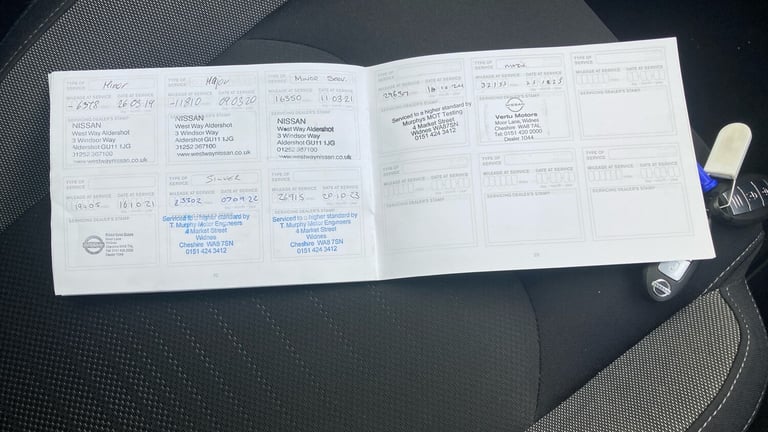 TYPE OF SERVICE Minor
MILEAGE AT SERVICE DATE AT SERVICE
26 03 19
SERVICING DEALER'S STAMP
NISSAN
West Way Aldershot
3 Windsor Way
Aldershot GU11 1JG
01252 367100
www.westwaynissan.co.uk
TYPE OF SERVICE Major
MILEAGE AT SERVICE DATE AT SERVICE
11810 09 03 20
SERVICING DEALER'S STAMP
NISSAN
West Way Aldershot
3 Windsor Way
Aldershot GU11 1JG
01252 367100
www.westwaynissan.co.uk
TYPE OF SERVICE Minor Serv.
MILEAGE AT SERVICE DATE AT SERVICE
16550 11 03 21
SERVICING DEALER'S STAMP
NISSAN
West Way Aldershot
3 Windsor Way
Aldershot GU11 1JG
01252 367100
www.westwaynissan.co.uk
TYPE OF SERVICE
MILEAGE AT SERVICE DATE AT SERVICE
16 10 21
SERVICING DEALER'S STAMP
NISSAN
TYPE OF SERVICE Silver
MILEAGE AT SERVICE DATE AT SERVICE
23302 07 09 22
SERVICING DEALER'S STAMP
Serviced to a higher standard by
T. Murphy Motor Engineers
4 Market Street
Widnes
Cheshire WA8 7SN
0151 424 3412
TYPE OF SERVICE
MILEAGE AT SERVICE DATE AT SERVICE
26915 20 10 23
SERVICING DEALER'S STAMP
Serviced to a higher standard by
T. Murphy Motor Engineers
4 Market Street
Widnes
Cheshire WA8 7SN
0151 424 3412
TYPE OF SERVICE
MILEAGE AT SERVICE DATE AT SERVICE
18 10 24
SERVICING DEALER'S STAMP
Serviced to a higher standard by
Murphys MOT Testing
4 Market Street
Widnes WA8 7SN
0151 424 3412
TYPE OF SERVICE
MILEAGE AT SERVICE DATE AT SERVICE
SERVICING DEALER'S STAMP
NISSAN
Vertu Motors
Moor Lane, Widnes
Cheshire WA8 7AL
Tel: 0151 420 2000
Dealer 1044
TYPE OF SERVICE
MILEAGE AT SERVICE DATE AT SERVICE
SERVICING DEALER'S STAMP
TYPE OF SERVICE
MILEAGE AT SERVICE DATE AT SERVICE
SERVICING DEALER'S STAMP
TYPE OF SERVICE
MILEAGE AT SERVICE DATE AT SERVICE
SERVICING DEALER'S STAMP
TYPE OF SERVICE
MILEAGE AT SERVICE DATE AT SERVICE
SERVICING DEALER'S STAMP